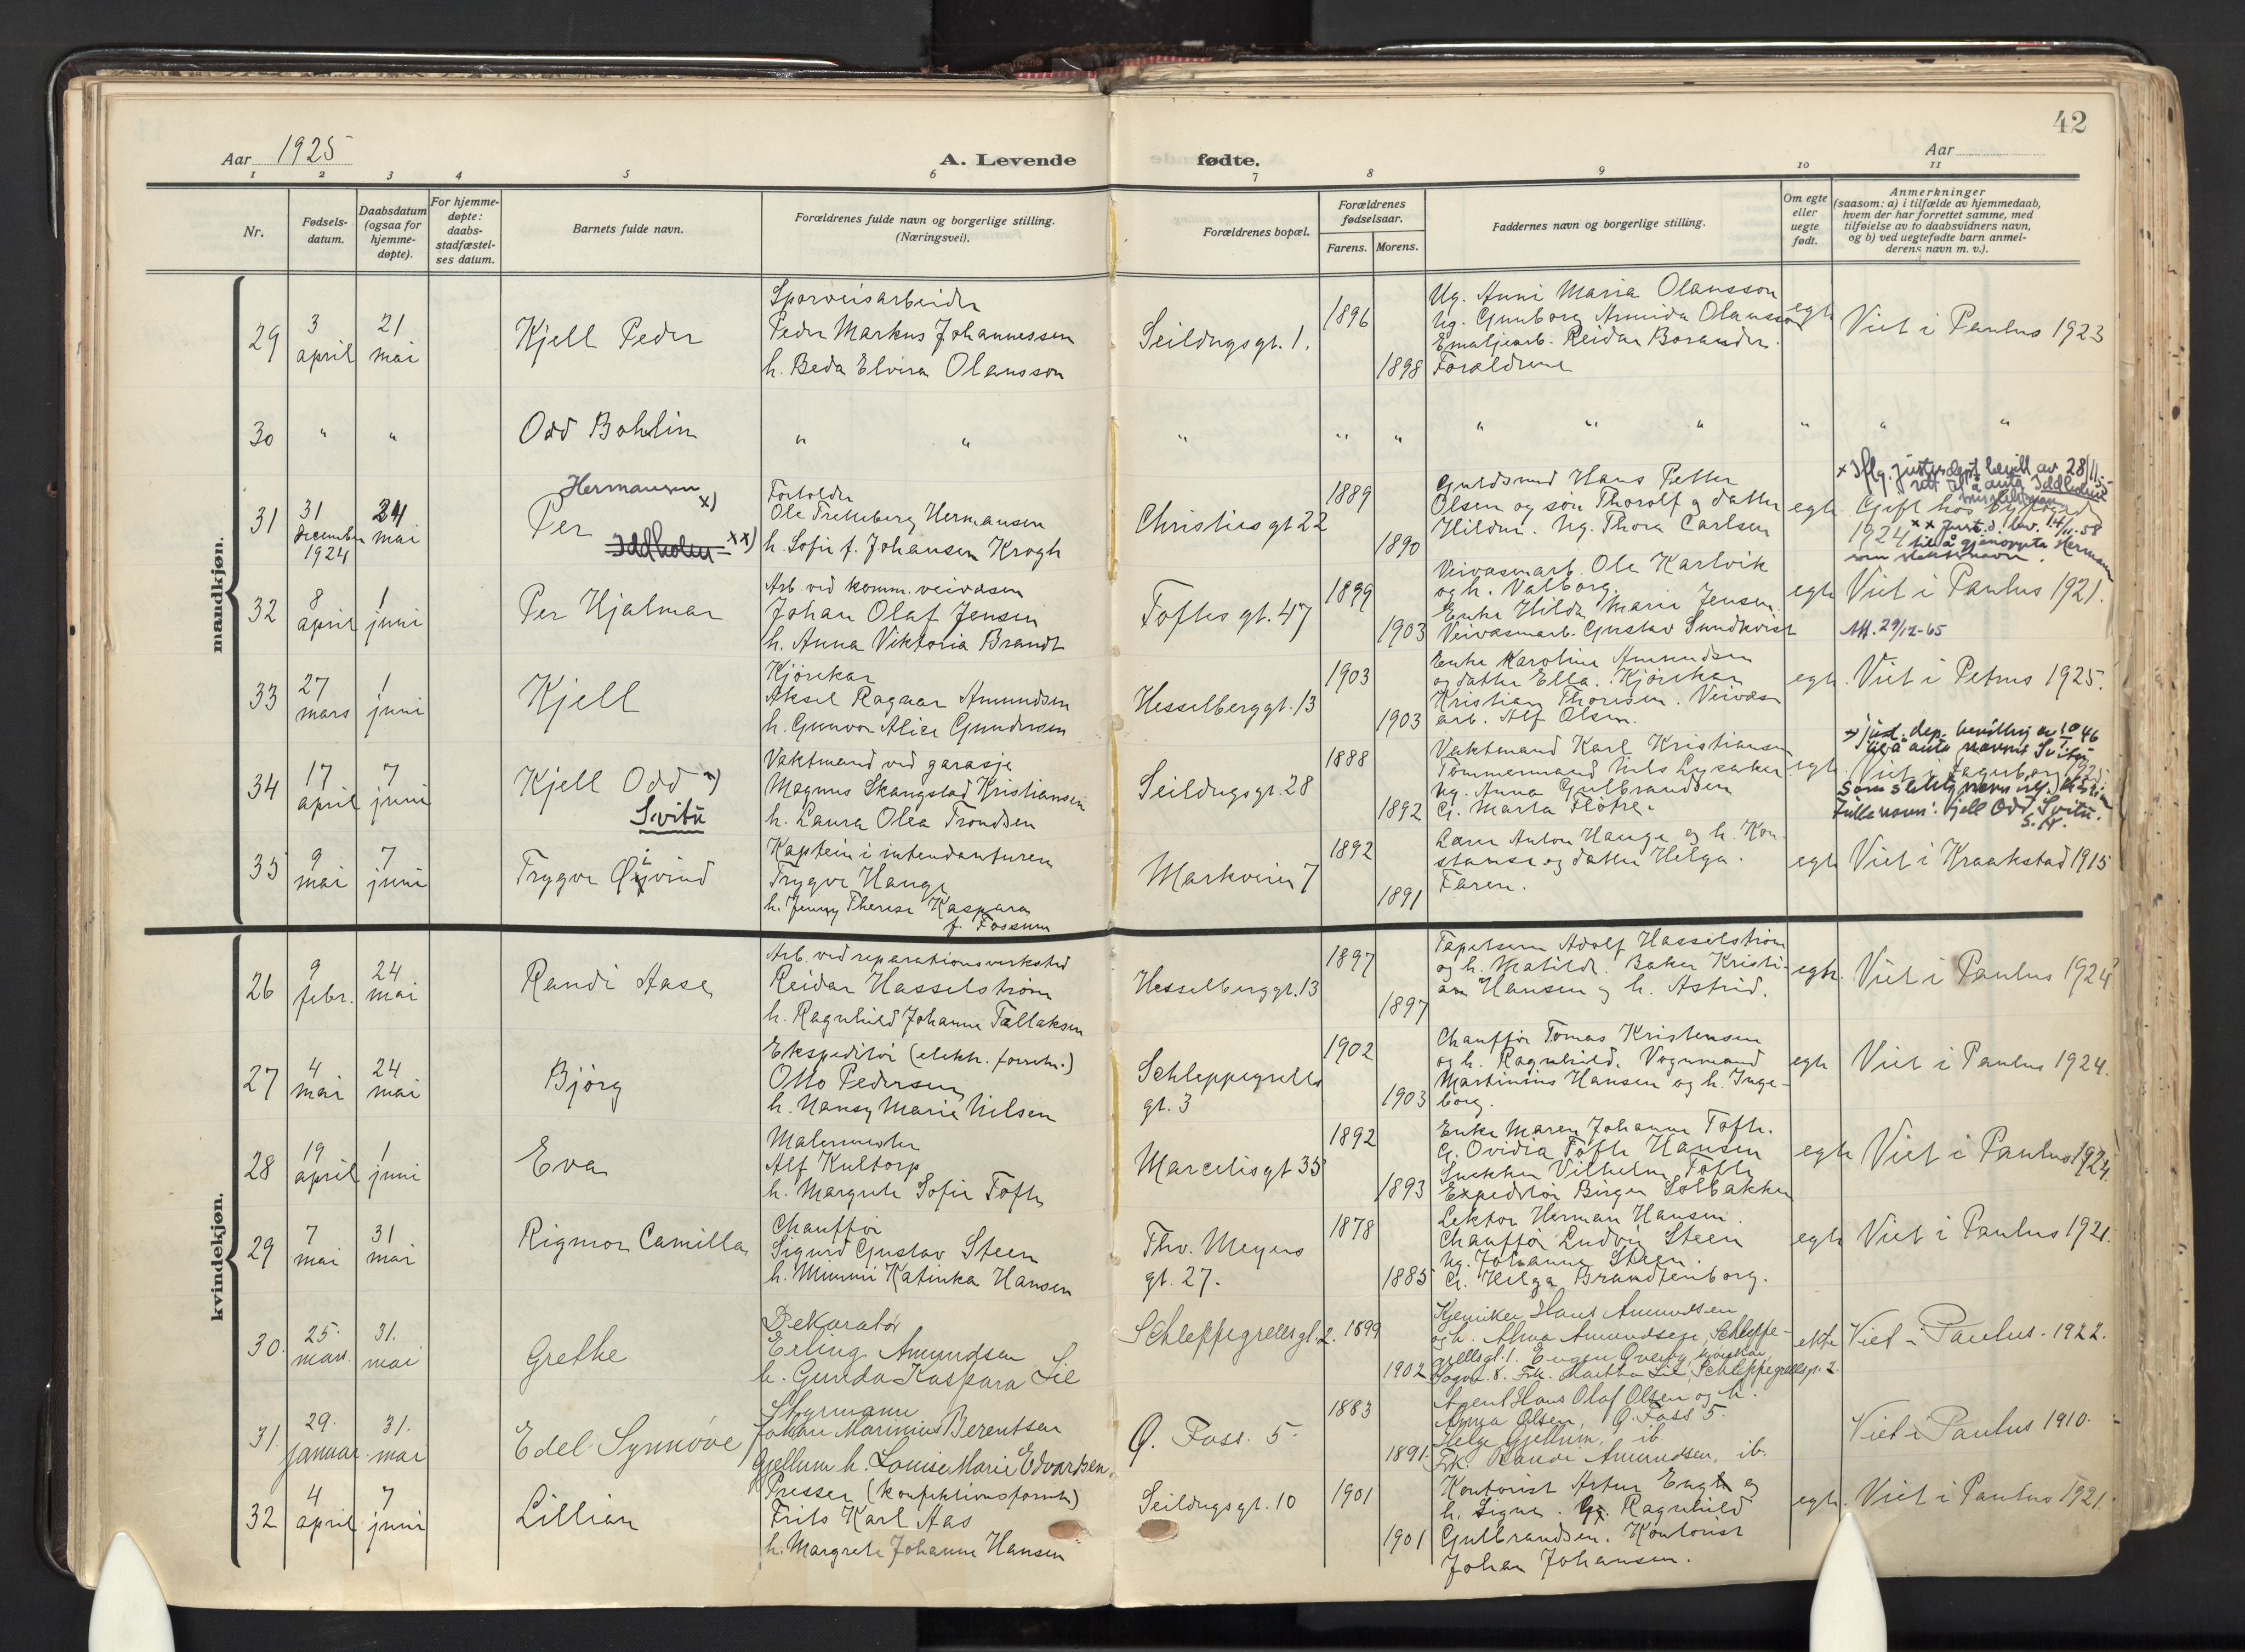 42
Aar 1925
A. Levende
fødte.
Aar
1 2 3 4 5 6 7 8 9 10 11
Nr.
Fødsels-
datum.
Daabsdatum
(ogsaa for
hjemme-
døpte).
For hjemme-
døpte:
daabs-
stadfæstel-
ses datum.
Barnets fulde navn.
Forældrenes fulde navn og borgerlige stilling.
(Næringsvei).
Forældrenes bopæl.
Forældrenes
fødselsaar.
Farens. Morens.
Faddernes navn og borgerlige stilling.
Om egte
eller
uegte
født.
Anmerkninger
(saasom: a) i tilfælde av hjemmedaab,
hvem der har forrettet samme, med
tilføielse av to daabsvidners navn,
og b) ved uegtefødte barn anmel-
derens navn m. v.).
mandkjøn.
29
3
april
21
mai
Kjell Peder
Sporveisarbeider
Peder Markus Johannessen
h. Beda Elvira Olausson
Seildugsgt. 1.
1896
1898
Ug. Anni Maria Olausson
Ug. Gunborg Armida Olausson
Emaljearb. Reidar Borander.
Forældrene
egte
Viet i Paulus 1923
30
"
"
Odd Bohlin
" "
"
" "
" " "
"
" "
31
31
december
1924
24
mai
Hermansen x)
Per
Iddholm xx)
Forfolder
Ole Tretteberg Hermansen
h. Sofie f. Johansen Krogh
Christies gt 22
1889
1890
Guldsmed Hans Petter
Olsen og søn Thorolf og datter
Hildur. Ug. Thora Carlsen
egte
x Iflg. justisdept bevill av 28/11
rett til å anta Iddholm
Gift hos byfogden
1924 xx just.d. bev. 14/11-58
til å gjenoppta Herman
som slektsnavn.
32
8
april
1
juni
Per Hjalmar
Arb. ved komm. veivæsen
Johan Olaf Jensen
h. Anna Viktoria Brandt
Toftes gt. 47
1899
1903
Veivæsenarb. Ole Karlvik
og h. Valborg.
Enke Hilda Marie Jensen.
Veivæsenarb. Gustav Sundkvist
egte
Viet i Paulus 1921.
Att. 29/12-65
33
27
mars
1
juni
Kjell
Kjørekar
Aksel Ragnar Amundsen
h. Gunvor Alice Gundersen
Hesselberggt. 13
1903
1903
Enke Karoline Amundsen
og datter Ella. Kjørekar
Kristian Thoresen. Veivæsn
arb. Alf Olsen.
egte
Viet i Petrus 1925.
34
17
april
7
juni
Kjell Odd x)
Svitu
Vaktmand ved garasje
Magnus Skangstad Kristiansen
h. Laura Olea Trondsen
Seildugsgt. 28
1888
1892
Vaktmand Karl Kristiansen
Tømmermand Nils Lysaker
Ug. Anna Gulbrandsen
G. Marta Fløtre.
egte
x) just. dep. bevilling av 10/7 46
til å anta navnet Svitu
Viet i Fagerborg 1923
som slektsnavn
Fulle navn: Kjell Odd Svitu.
S. N.
35
9
mai
7
juni
Trygve Øivind
Kaptein i intendanturen
Trygve Hauge
h. Jenny Therese Kaspara
f. Fossum
Markveien 7
1892
1891
Lærer Anton Hauge og h. Kon-
stanse og datter Helga.
Faren.
egte
Viet i Kraakstad 1915
kvindekjøn.
26
9
febr.
24
mai
Randi Aase
Arb. ved reparationsverksted
Reidar Hasselstrøm
h. Ragnhild Johanne Tallaksen
Hesselberggt. 13
1897
1897
Tapetserer Adolf Hasselstrøm
og h. Matilde. Baker Kristi-
an Hansen og h. Astrid.
egte.
Viet i Paulus 1924
27
4
mai
24
mai
Bjørg
Ekspeditør (elektr. forretn.)
Otto Pedersen
h. Nansy Marie Nilsen
Schleppegrells
gt. 3
1902
1903
Chauffør Tomas Kristensen
og h. Ragnhild. Vognmand
Martinius Hansen og h. Inge-
borg.
egte
Viet i Paulus 1924.
28
19
april
1
juni
Eva
Malermester
Alf Kultorp
h. Margrete Sofie Tofte
Marcelisgt 35
1892
1893
Enke Maren Johanne Tofte.
G. Ovidia Tofte Hansen
Snekker Vilhelm Tofte
Expeditør Birger Solbakken
egte
Viet i Paulus 1924.
29
7
mai
31
mai
Rigmor Camilla
Chauffør
Sigurd Gustav Steen
h. Mimmi Katinka Hansen
Thv. Meyers
gt. 27.
1878
1885
Lektor Herman Hansen.
Chauffør Ludvig Steen
Ug. Johanne Steen.
G. Helga Brandtenborg.
egte
Viet i Paulus 1921.
30.
25.
mars.
31.
mai
Grethe
Dekoratør
Erling Amundsen
h. Gunda Kaspara Lie
Schleppegrellsgt. 2.
1899
1902
Kjemiker Hans Amundsen
og h. Alma Amundsen, Schleppe-
grellsgt. 1. Eugen Qverby,
Frk. Martha Lie, Schleppegrellsgt. 2.
ekte
Viet i Paulus. 1922.
31.
29.
januar.
31.
mai
Edel Synnøve
Styrmann
Johan Marinius Berentsen
Gjellum h. Louise Marie Edvardsen.
Q. Foss. 5.
1883
1891.
Agent Hans Olaf Olsen og h.
Anna Olsen, Q. Foss 5.
Helge Gjellum, ib.
Frk. Randi Amundsen, ib.
Viet i Paulus 1910.
32
4
april
7
juni
Lillian
Presser (konfektionsforretn.)
Frits Karl Aas
h. Margrete Johanne Hansen
Seildugsgt. 10
1901
1901
Kontorist Artur Engh og
h. Signe. Ug. Ragnhild
Gulbrandsen. Kontorist
Johan Johansen.
egte.
Viet i Paulus 1921.